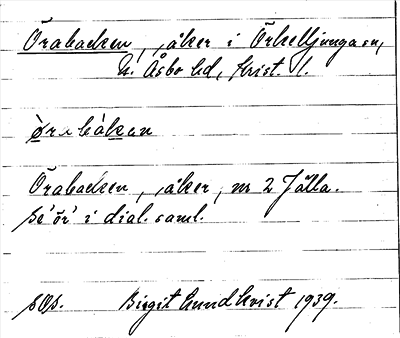 Örabacken, åker i Örkelljunga sn,
N. Åsbo hd, Krist. l.
òrabákan
Örabacken, åker, nr 2 Jälla.
se 'ör' i dial. saml.
sOp. Birgit Lundkvist 1939.